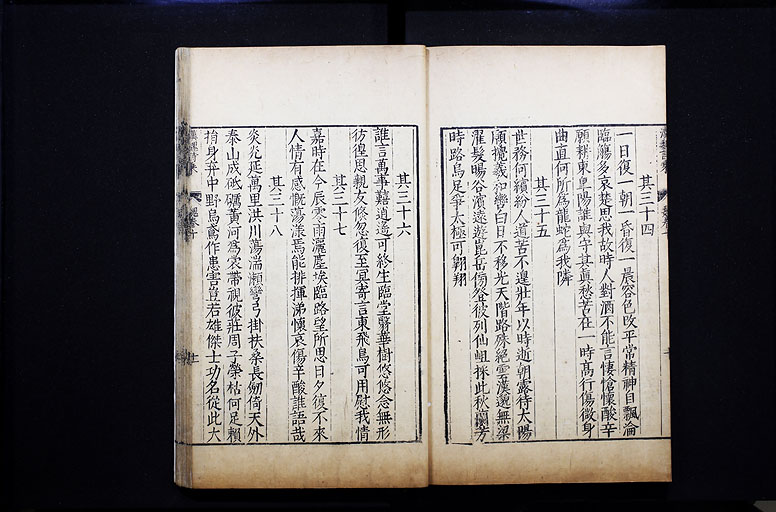 其三十四
一日復一朝一昏復一晨容色改平常精神自飄淪
臨觴多哀楚思我故時人對酒不能言悽愴懷酸辛
願耕東皐陽誰與守其真愁苦在一時高行傷微身
曲直何所為龍蛇為我隣
其三十五
世務何繽紛人道苦不遑壯年以時逝朝露待太陽
願攬羲和轡白日不移光天階路殊絕雲漢邈無梁
濯髮暘谷濱遠遊崑岳傍登彼列仙岨採此秋蘭芳
時路烏足爭太極可翺翔
其三十六
誰言萬事囏逍遙可終生臨堂翳華樹悠悠念無形
彷徨思親友倐忽復至冥寄言東飛鳥可用慰我情
其三十七
嘉時在今辰零雨灑塵埃臨路望所思日夕復不來
人情有感慨蕩漾焉能排揮涕懷哀傷辛酸誰語哉
其三十八
炎光延萬里洪川蕩湍瀨彎弓掛扶桑長劒倚天外
泰山成砥礪黃河為裳帶視彼莊周子榮枯何足賴
捐身弃中野烏鳶作患害豈若雄傑士功名從此大